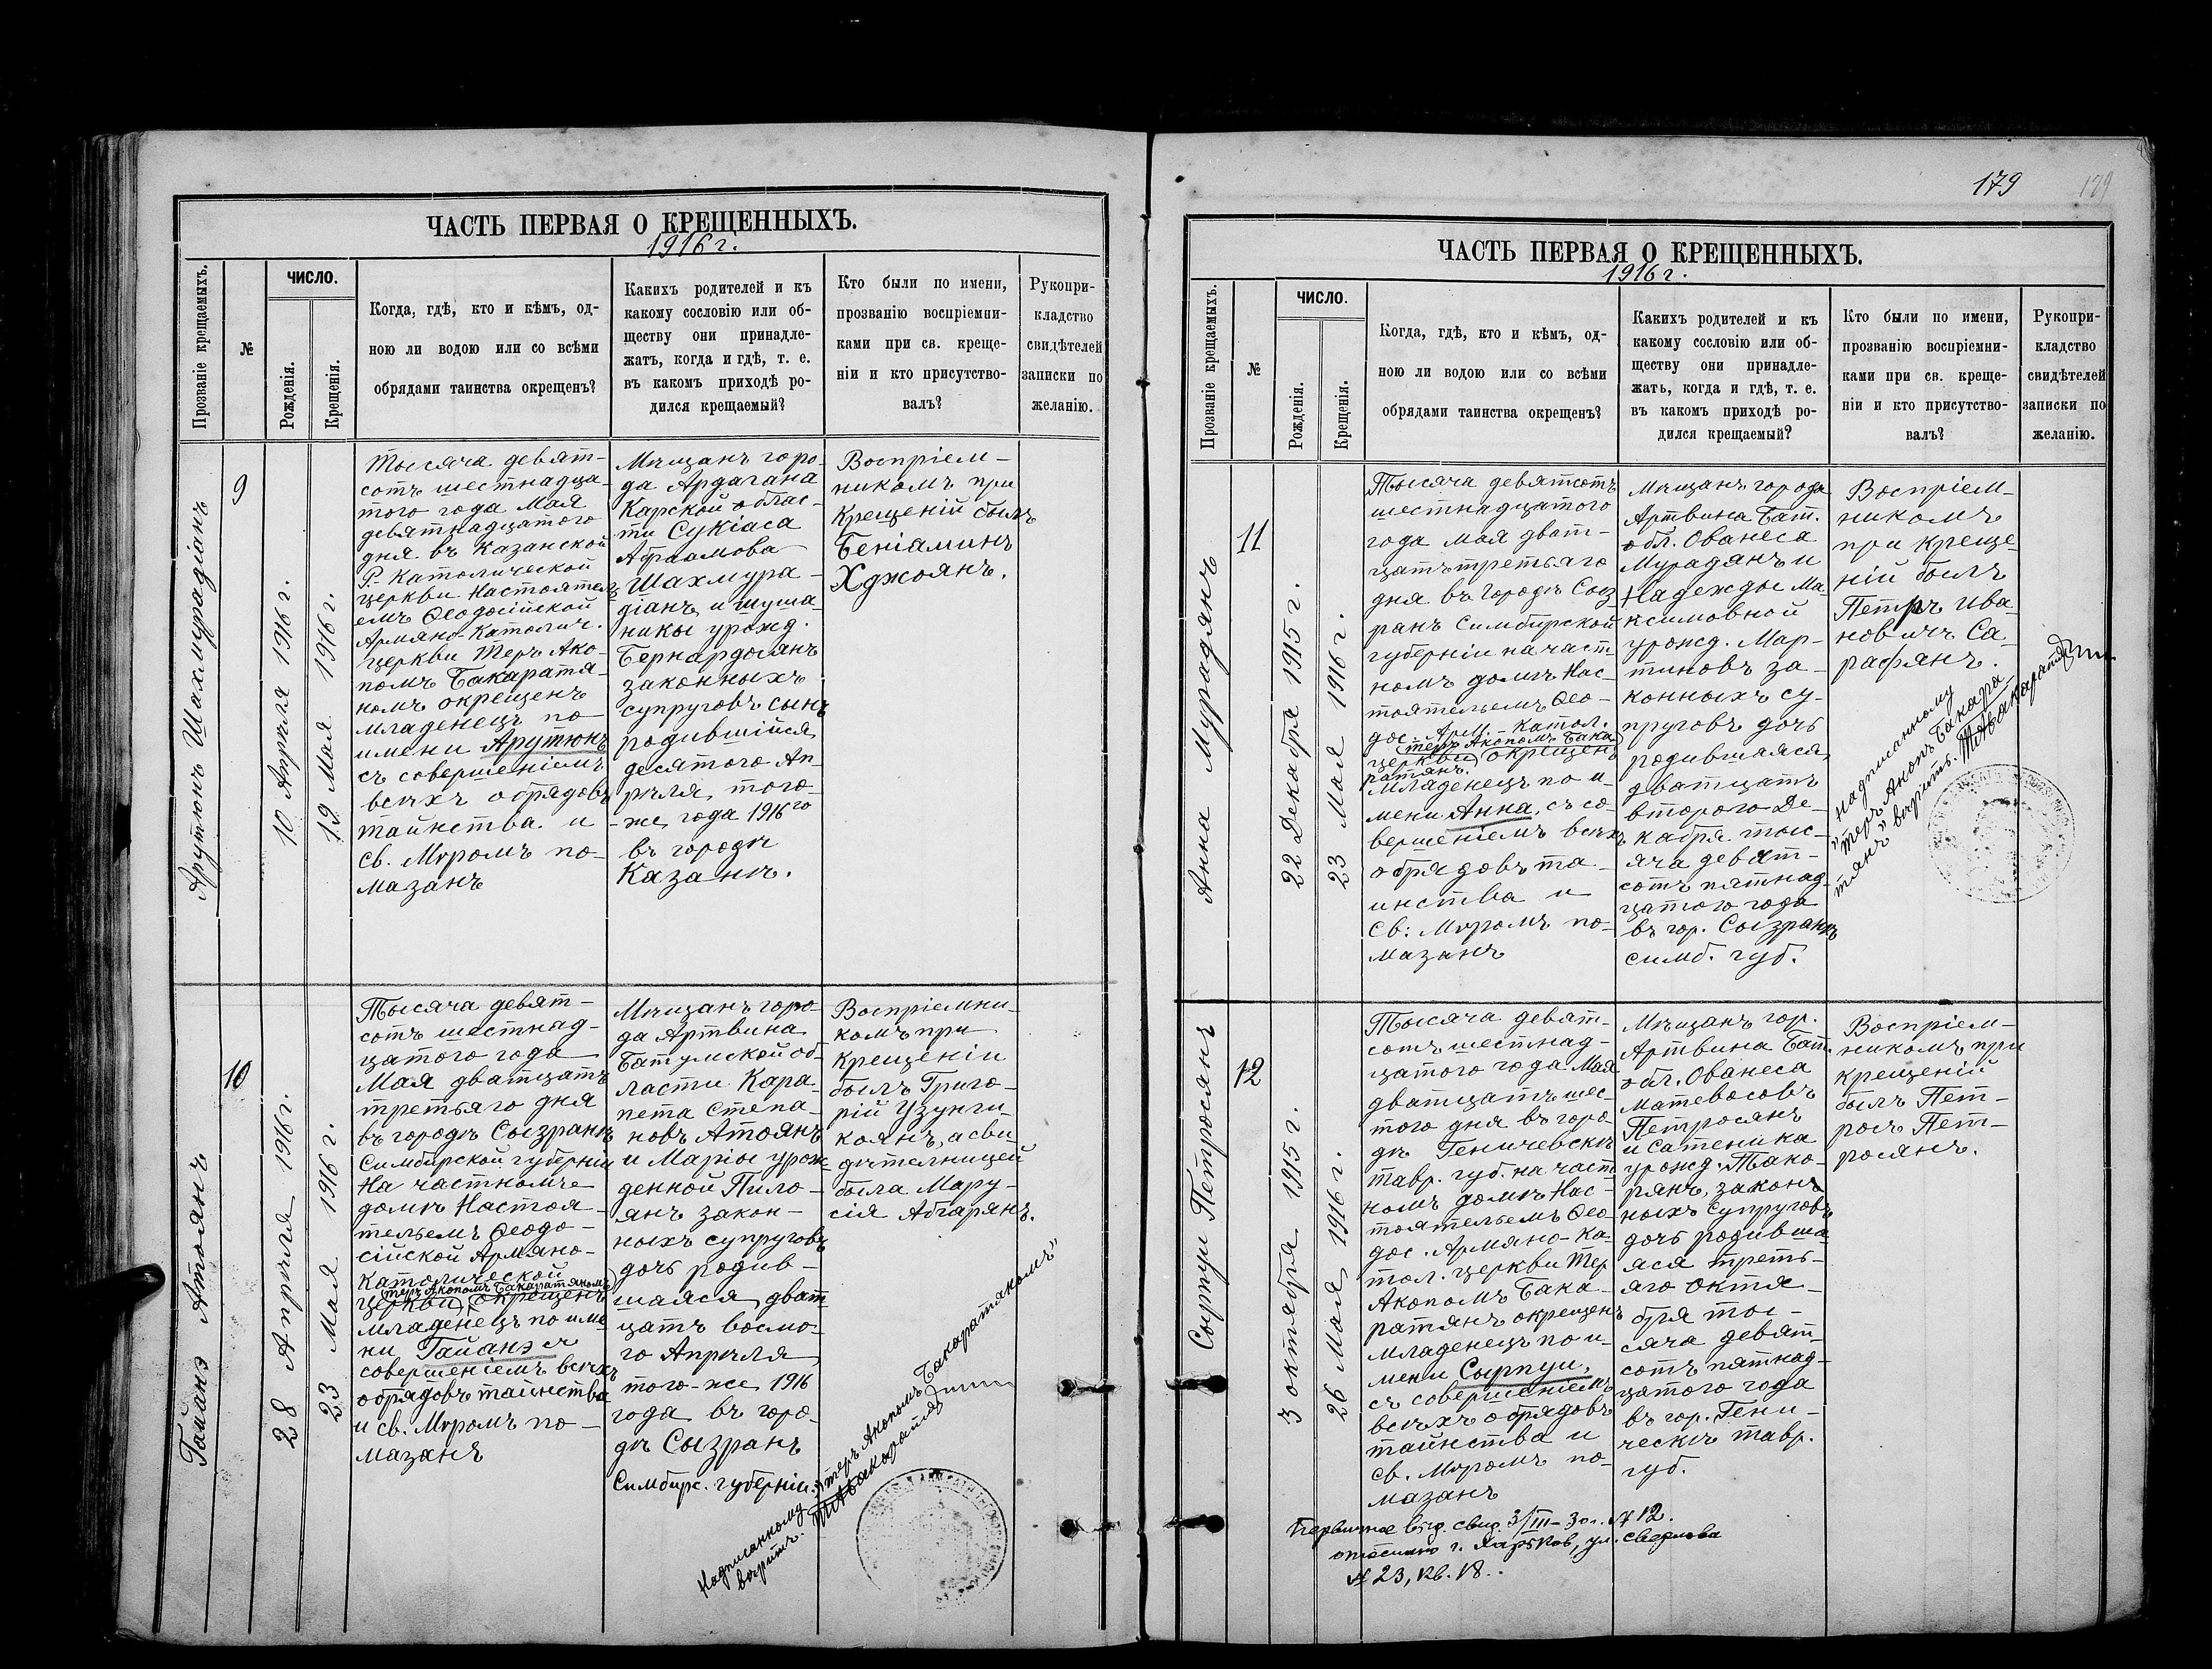 ЧАСТЬ ПЕРВАЯ О КРЕЩЕННЫХЪ.
1916 г.
Прозваніе крещаемыхъ.
№
ЧИСЛО.
Рожденія.
Крещенія.
Когда, гдѣ, кто и кѣмъ, од-
ною ли водою или со всѣми
обрядами таинства окрещенъ?
Какихъ родителей и къ
какому сословію или об-
ществу они принадле-
жатъ, когда и гдѣ, т. е.
въ какомъ приходѣ ро-
дился крещаемый?
Кто были по имени,
прозванію воспріемни-
ками при св. креще-
ніи и кто присутство-
валъ?
Рукопри-
кладство
свидѣтелей
записки по
желанію.
Арутюнъ Шахмурадіанъ
9
10 Апрѣля 1916 г.
19 Мая 1916 г.
Тысяча девят-
сотъ шестнадца-
того года Мая
девятнадцатого
дня въ Казанской
Р. Католической
церкви Настоятел-
емъ Ѳеодосійской
Армяно-Католич.
церкви Теръ Ако-
помъ Бакаратя-
номъ окрещенъ
младенецъ по
имени Арутюнъ
съ совершеніемъ
всѣхъ обрядовъ
таинства и
св. Мѵромъ по-
мазанъ
Мѣщанъ горо-
да Ардагана
Карской облас-
ти Сукіаса
Абраамова
Шахмура-
діанъ и Шуша-
никы урожд.
Бернардосянъ
законныхъ
супруговъ сынъ
родившійся
десятого Ап-
рѣля, того-
-же года 1916го
въ городѣ
Казани.
Воспріем-
никомъ при
Крещеній былъ
Беніаминъ
Хджоянъ.
Гайанэ Атоянъ
10
28 Апрѣля 1916 г.
23 Мая 1916 г.
Тысяча девят-
сотъ шестнад-
цатого года
Мая дватцать
третьяго дня
въ городѣ Сызранѣ
Симбирской губерніи
На частномъ
домѣ Настоя-
тельемъ Ѳеодо-
сійской Армяно-
Католической
теръ Акопомъ Бакаратяномъ
церкви, окрещенъ
младенецъ по име
ни Гайанэ съ
совершеніемъ всѣхъ
обрядовъ таинства
и св. Мѵромъ по-
мазанъ
Мѣщанъ горо-
да Артвина
Батумской об-
ласти Кара-
пета Степа-
новъ Атоянъ
и Маріи урож-
денной Пило-
янъ закон-
ныхъ супруговъ
дочь родив-
шаяся дват
цать восмо-
го Апрѣля
того-же 1916
года въ горо-
дѣ Сызранъ
Симбирс. губерніи.
Воспріемни-
комъ при
Крещеніи
былъ Григо-
рій Узунги-
коянъ, а сви-
дѣтелницей
была Мару-
сія Абгарянъ.
Надписанному „теръ Акопомъ Бакаратяномъ“
вѣрить.
179
ЧАСТЬ ПЕРВАЯ О КРЕЩЕННЫХЪ.
1916 г.
Прозваніе крещаемыхъ.
№
ЧИСЛО.
Рожденія.
Крещенія.
Когда, гдѣ, кто и кѣмъ, од-
ною ли водою или со всѣми
обрядами таинства окрещенъ?
Какихъ родителей и къ
какому сословію или об-
ществу они принадле-
жатъ, когда и гдѣ, т. е.
въ какомъ приходѣ ро-
дился крещаемый?
Кто были по имени,
прозванію воспріемни-
ками при св. креще-
ніи и кто присутство-
валъ?
Рукопри-
кладство
свидѣтелей
записки по
желанію.
Анна Мурадянъ
11
22 Декабря 1915 г.
23 Мая 1916 г.
Тысяча девятсотъ
шестнадцатого
года мая дват-
цать третьяго
дня въ городѣ Сыз
ранъ Симбирской
губерніи на част
номъ домѣ Нас-
тоятельемъ Ѳео-
дос. Арм.-Катол.
теръ Акопомъ Бака
церкви окрещенъ
ратянъ.
младенецъ по и-
мени Анна, съ со-
вершеніемъ всѣхъ
обрядовъ та-
инства и
Св: Мѵромъ по-
мазанъ
Мѣщанъ города
Артвина Бат.
обл. Ованеса
Мурадянъ и
Надежды Ма-
ксимовной
урожд. Мар-
тиновъ за-
конныхъ су-
пруговъ дочь
родившаяся
дватцать
второго Де-
кабря тыс-
яча девят-
сотъ пятнад-
цатого года
въ гор. Сызранѣ
симб. губ.
Воспріем-
никомъ
при Креще-
ній былъ
Петръ Ива-
новичъ Са-
рафянъ.
Надписанному
„теръ Акопъ Бакара-
тянъ“ вѣрить.
Сырпуи Петросянъ
12
3 октября 1915 г.
26 Мая 1916 г.
Тысяча девят-
сотъ шестнад-
цатого года Мая
дватцать шес-
того дня въ горо-
дѣ Геничевскѣ
тавр. губ. на част
номъ домѣ Нас-
тоятельемъ Ѳео-
дос. Армяно-Ка-
тол. церкви Тер
Акопомъ Бака-
ратянъ окрещенъ
младенецъ по и-
мени Сырпуи,
съ совершеніемъ
всѣхъ обрядовъ
таинства и
св. Мѵромъ по-
мазанъ
Мѣщанъ гор.
Артвина Бат.
обл. Ованеса
Матевосовъ
Петросянъ
и Сатеника
урожд. Тако-
рянъ, закон-
ныхъ супруговъ
дочь родивша-
яся треть-
яго октя-
бря ты-
сяча девят-
сотъ пятнад-
цатого года
въ гор. Гени-
ческѣ тавр.
губ.
Воспріем-
никомъ при
крещеній
былъ Пет-
росъ Пет-
росянъ.
Первичное выд. свид. 3/III-30 г. № 12.
г. Харьков, ул. Свердлова
№ 23, кв. 18.